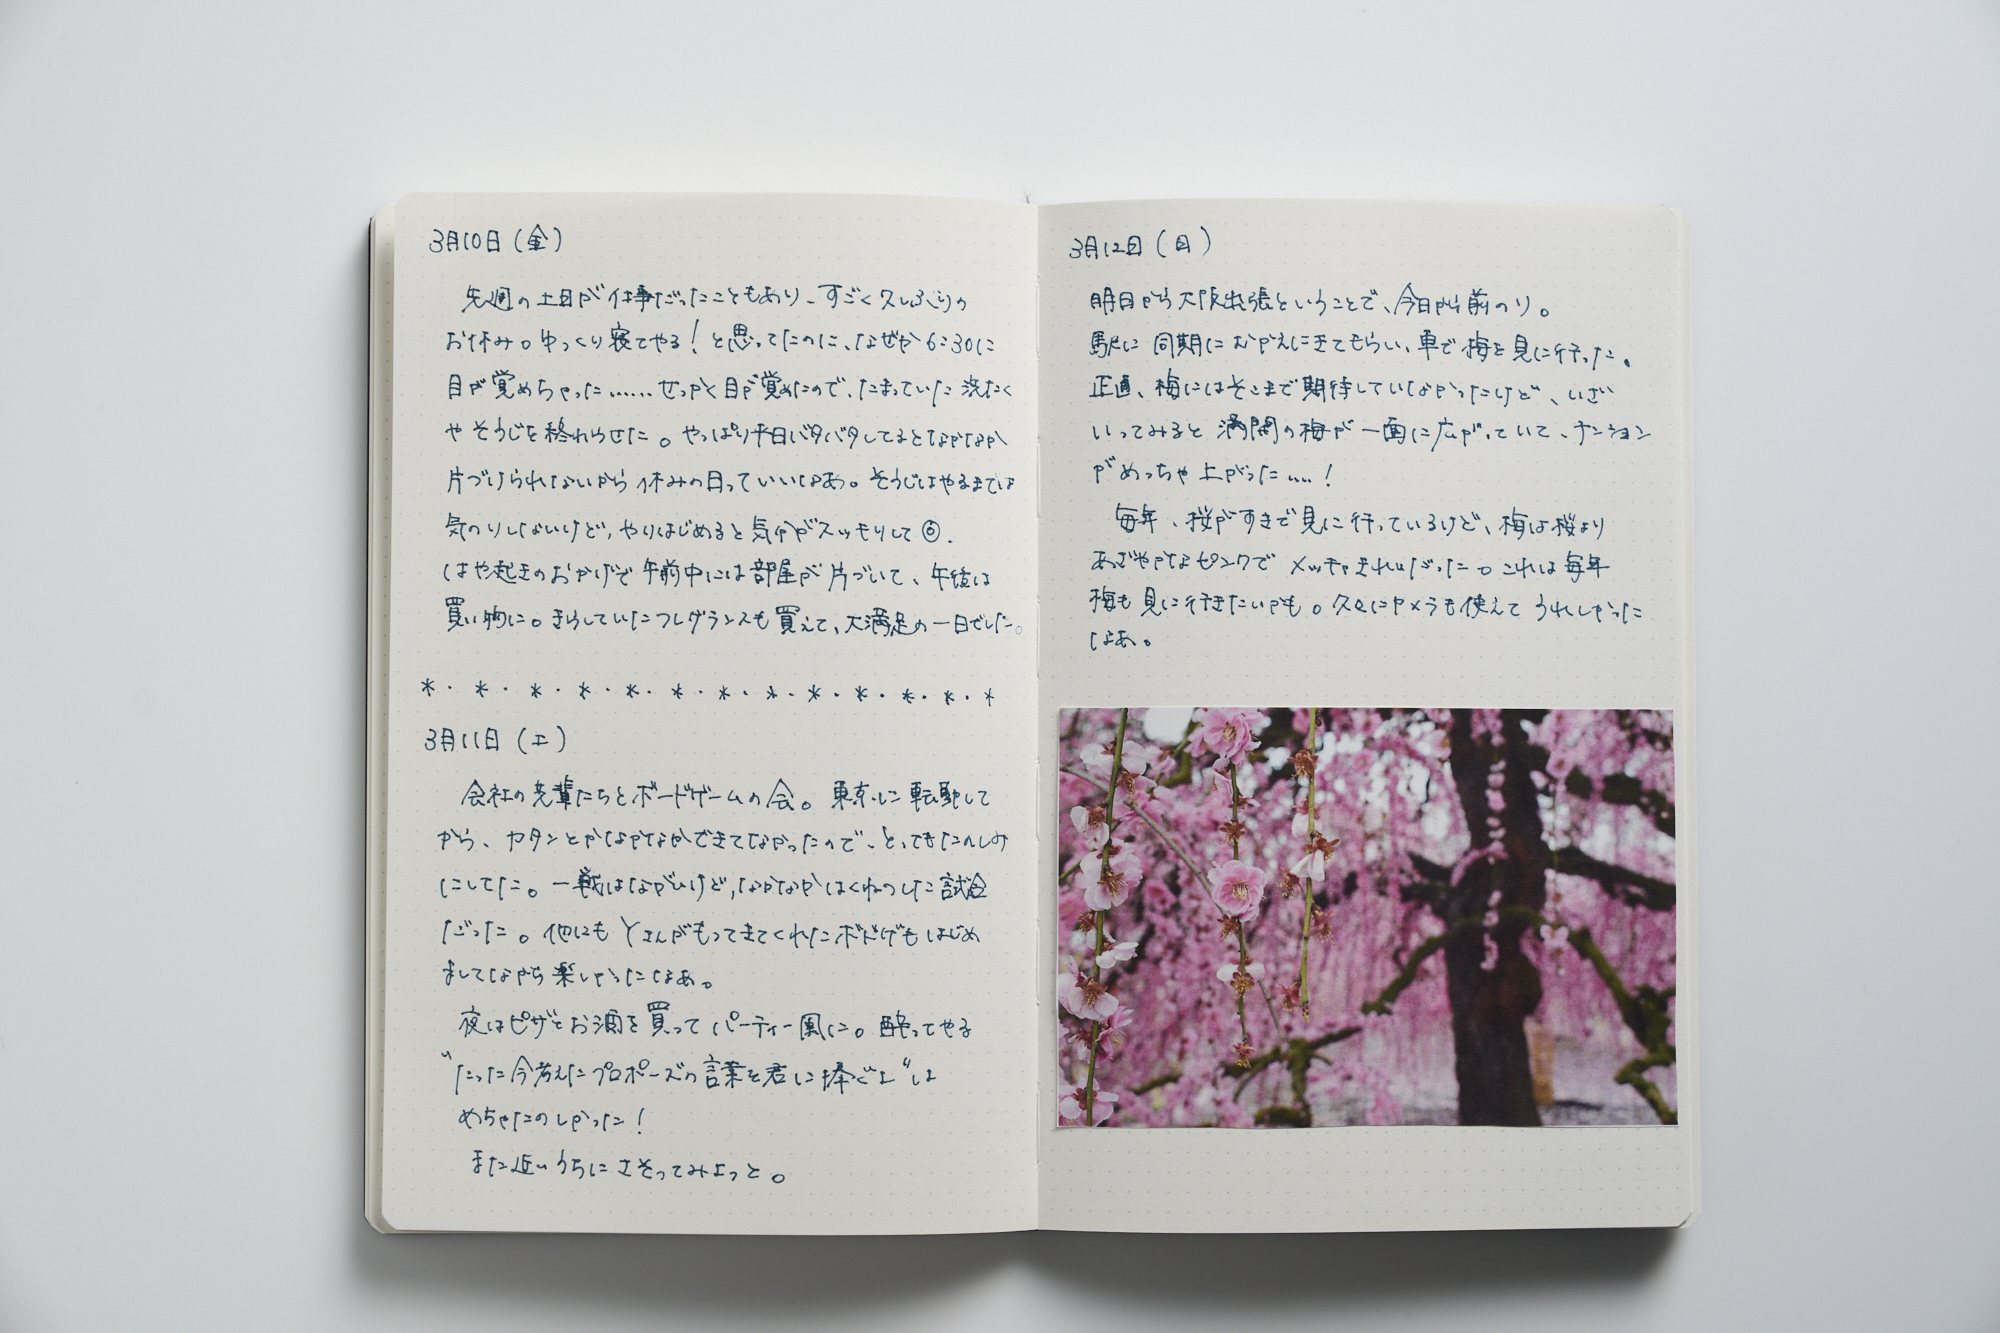 3月10日(金)
先週の土日が仕事だったこともあり、すごく久しぶりの
お休み。ゆっくり寝てやる!と思ってたのに、なぜか6:30に
目が覚めちゃった……せっかく目が覚めたので、たまっていた洗たく
やそうじを終わらせた。やっぱり平日バタバタしてるとなかなか
片づけられないから休みの日っていいなあ。そうじはやるまでは
気のりしないけど、やりはじめると気分がスッキリして◎.
はや起きのおかげで午前中には部屋が片づいて、午後は
買い物に。きらしていたフレグランスも買えて、大満足の一日でした。
*・*・*・*・*・*・*・*・*・*・*・*・*
3月11日(土)
会社の先輩たちとボードゲームの会。東京に転勤して
から、カタンとかなかなかできてなかったので、とってもたのしみ
にしてた。一戦はながいけど、なかなかはくねつした試合
だった。他にもYさんがもってきてくれたボドゲもはじめ
ましてながら楽しかったなあ。
夜はピザとお酒を買ってパーティー風に。酔ってやる
"たった今考えたプロポーズの言葉を君に捧ぐよ"は
めちゃたのしかった!
また近いうちにさそってみよっと。
3月12日(日)
明日から大阪出張ということで、今日から前のり。
駅に同期にむかえにきてもらい、車で梅を見に行った。
正直、梅にはそこまで期待していなかったけど、いざ
いってみると満開の梅が一面に広がっていて、テンション
がめっちゃ上がった……!
毎年、桜がすきで見に行っているけど、梅は桜より
あざやかなピンクでメッチャきれいだった。これは毎年
梅も見に行きたいかも。久々にカメラも使えてうれしかった
なあ。